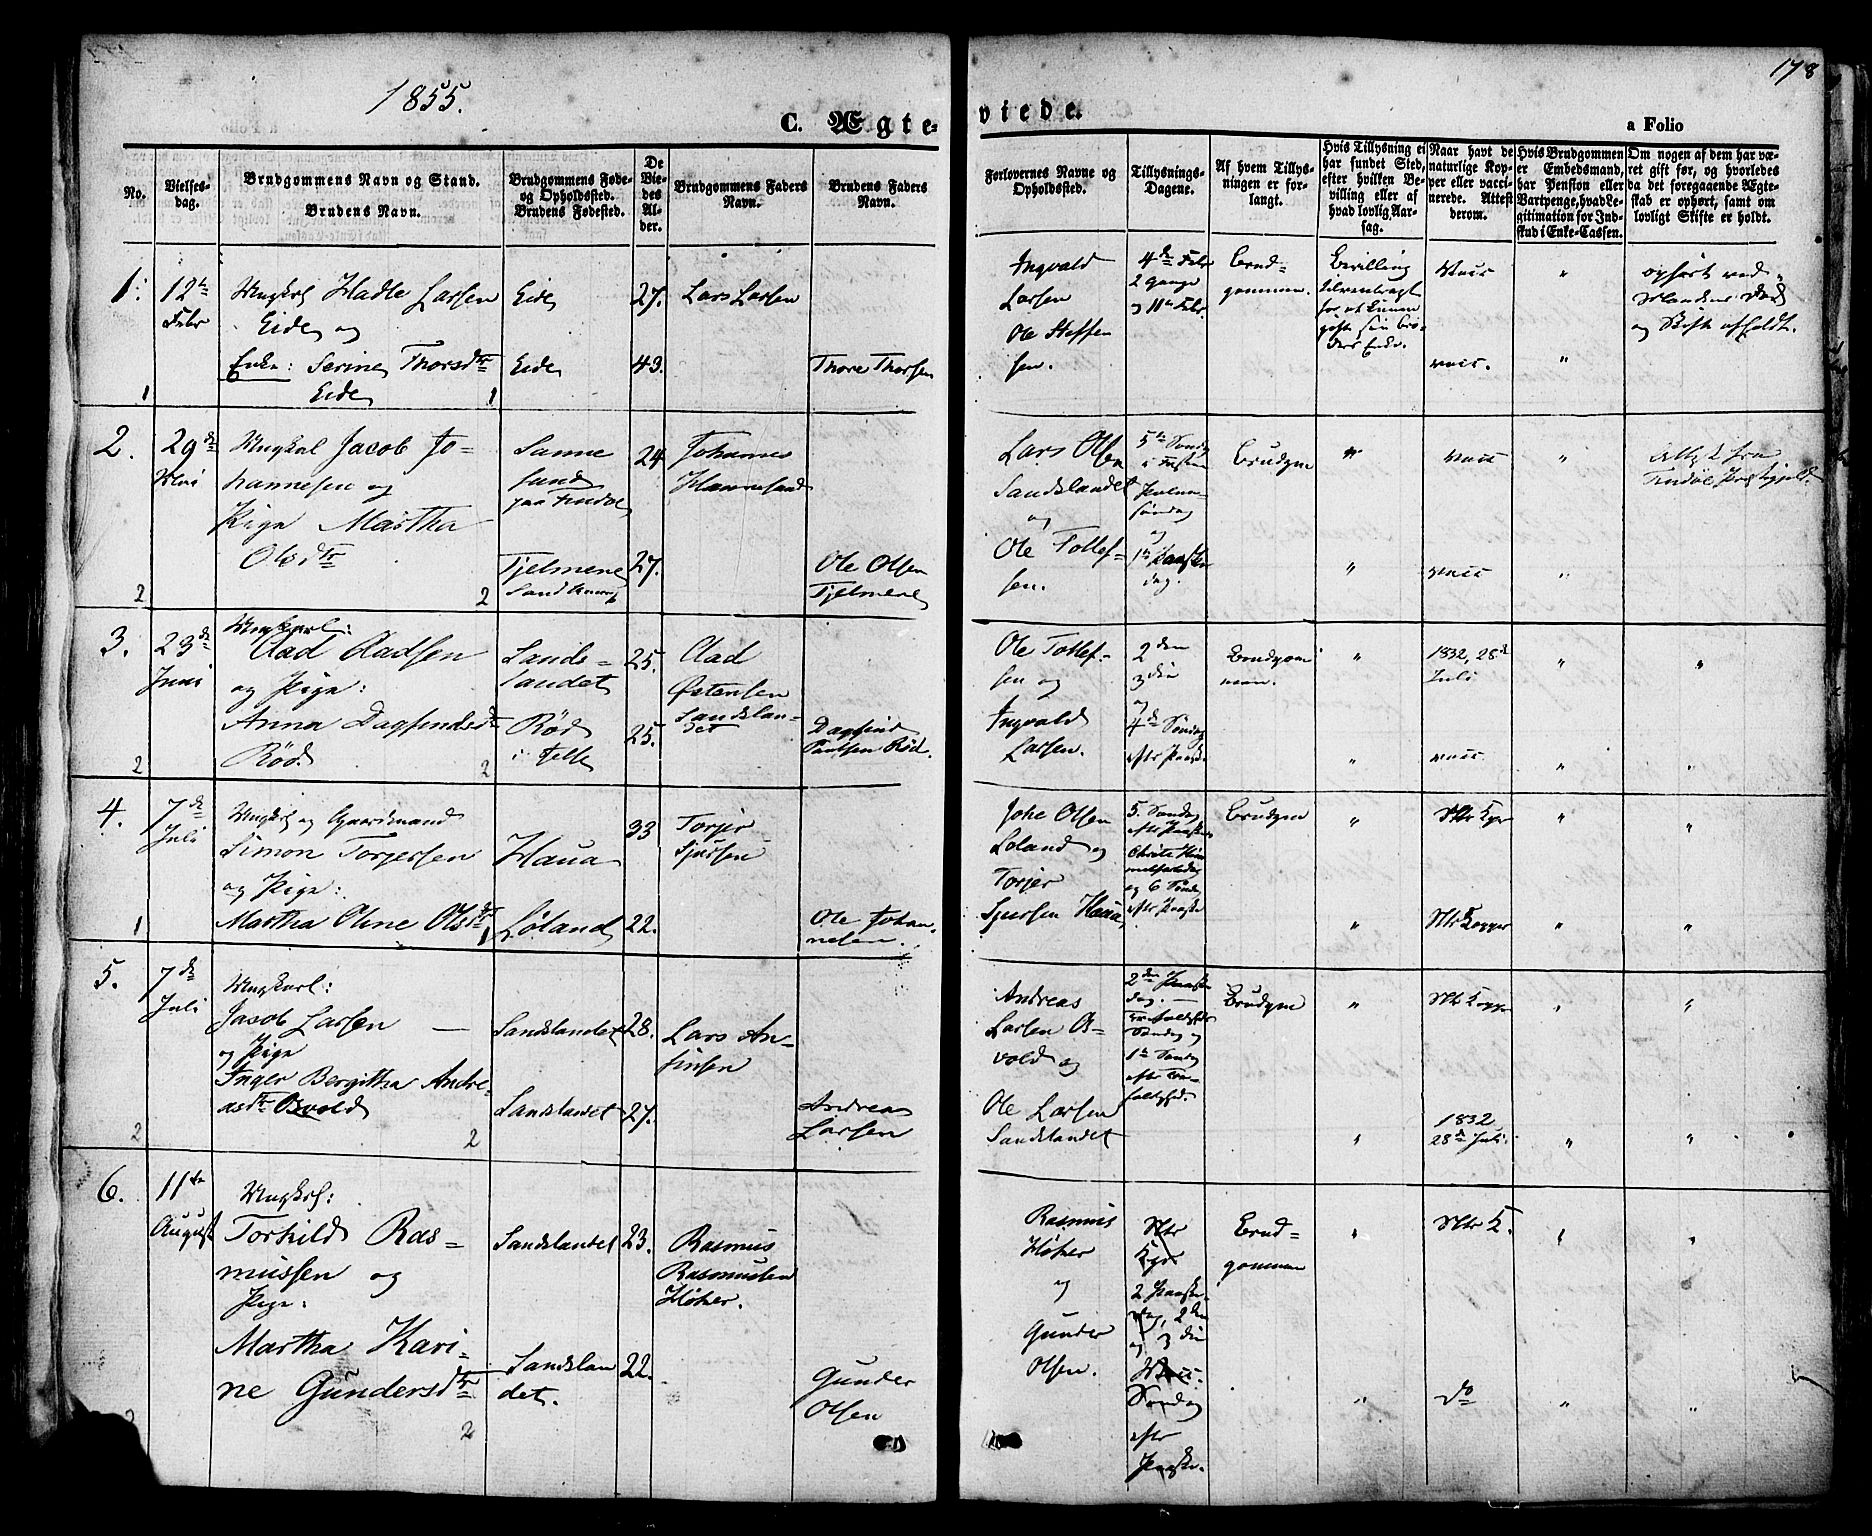 1855.
178
C. Ægte-
viede.
a Folio
No.
Vielses-
dag.
Brudgommens Navn og Stand.
Brudens Navn.
Brudgommens Føde-
og Opholdssted.
Brudens Fødested.
De
Vie-
des
Al-
der.
Brudgommens Faders
Navn.
Brudens Faders
Navn.
Forlovernes Navne og
Opholdssted.
Tillysnings-
Dagene.
Af hvem Tillys-
ningen er for-
langt.
Hvis Tillysning ei
har fundet Sted,
efter hvilken Be-
villing eller af
hvad lovlig Aar-
sag.
Naar havt de
naturlige Kop-
per eller vacci-
nerede. Attest
derom.
Hvis Brudgommen
er Embedsmand,
har Pension eller
Vartpenge, hvad Le-
gitimation for Ind-
skud i Enke-Cassen.
Om nogen af dem har væ-
ret gift før, og hvorledes
da det foregaaende Ægte-
skab er ophørt, samt om
lovligt Skifte er holdt.
1.
12te
Febr
Ungkrl Hadle Larsen
Eide og
Enke: Serine Thorsdtr
Eide
Eide
Eide
27.
43.
Lars Larsen
Thore Thorsen
Ingvald
Larsen
Ole Steffen
sen.
4de Febr
2 Gange
og 11te Febr
Brud-
gommen.
Bevilling
for at kunne
gifte sin Bro-
ders Enke.
vacc.
ophørt ved
og Skifte afholdt.
2.
29de
Mai
Ungkal Jacob Jo-
hannesen og
Pige Martha
Olsdtr
Sanne
sund
paa Findøe
Tjelmene
24
27.
Johannes
Hannesand
Ole Olsen
Tjelmene
Lars Olsen
Sandslandet
og
Ole Tollef-
sen.
5te Sønd
i Fasten
Palme-
søndag
og
1te Paaske
dag.
Brudgm
vacc
vacc
3.
23de
Juni
Ungkarl:
Aad Aadsen
og Pige:
Anna Dagfindsd
Rød
Sands-
landet
Rød
i Felle
25.
25.
Aad
Østensen
Sandslan-
det
Dagfind
Paulsen Rød.
Ole Tollef-
sen og
Ingvald
Larsen.
2den
3die
og
4de Søndag
efter Paaske.
Brudgom
men.
1832, 28de
Juli
vacc
4.
7de
Juli
Ungkrl og Gaardmand
Simon Torjersen
og Pige:
Martha Oline Olsdtr
Haua
Løland
33
22.
Torjer
Sjursen
Ole Johan-
nesen.
Johe Olsen
Loland og
Torjer
Sjursen Haua
5. Søndag
efter Paaske
Christi Him
melfartsdag
og 6 Sønd
efter Paaske
Brudgm
Ntr Kopper
5.
7de
Juli
Ungkarl:
Jacob Larsen
og Pige
Inger Bergitha Andre-
asdtr Osvold
Sandslandet
Sandslandet
28.
27.
Lars An-
finsen
Andreas
Larsen
Andreas
Larsen Os-
vold og
Ole Larsen
Sandslandet
2den Paaske
dag.
Søndag og
1te Søndag
efter Tre-
foldighd.
Brudgm
Ntr Kopper
1832
28de Juli.
6.
11te
August
Ungkrl:
Torkild Ras-
mussen og
Pige:
Martha Kari-
ne Gundersdtr
Sandslandet
Sandslan
det.
23.
22.
Rasmus
Rasmussen
Høker.
Gunder
Olsen
Rasmus
Høker
og
Gunder
Olsen.
Ntr
Kpr
2 Paaske-
dag, 2den
og 3die
Vacc.
Søndag
efter
Paaske.
Brud-
gommen
Ntr K.
do